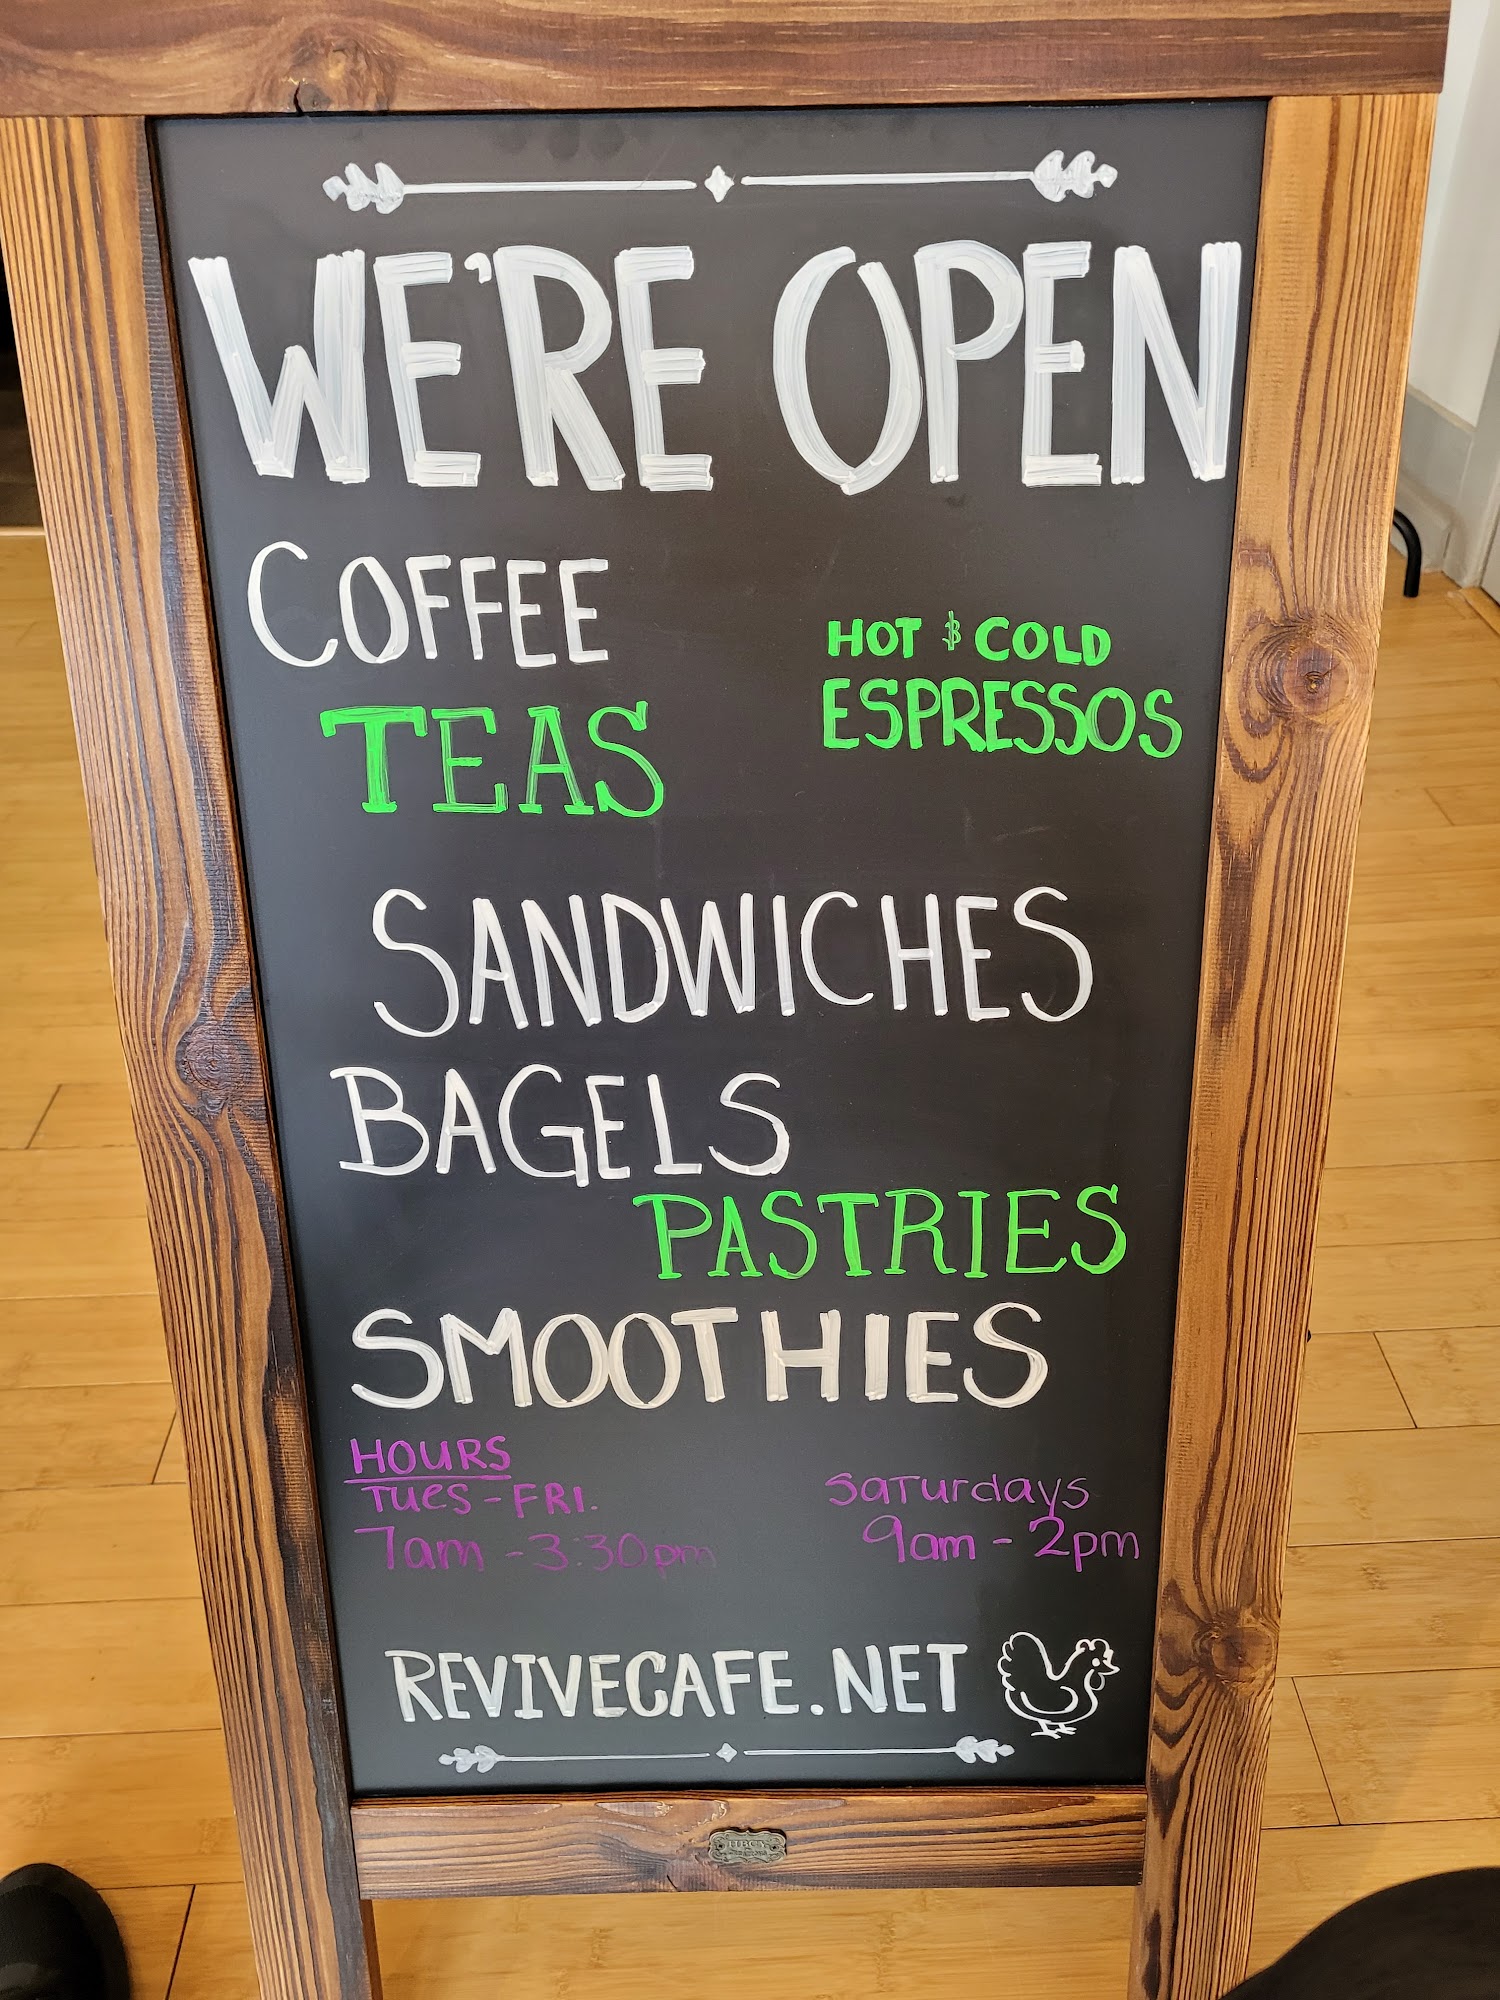 WE'RE OPEN
COFFEE
HOT & COLD
TEAS
ESPRESSOS
SANDWICHES
BAGELS
PASTRIES
SMOOTHIES
HOURS
TUES - FRI.
7am - 3:30pm
Saturdays
9am - 2pm
REVIVECAFE.NET